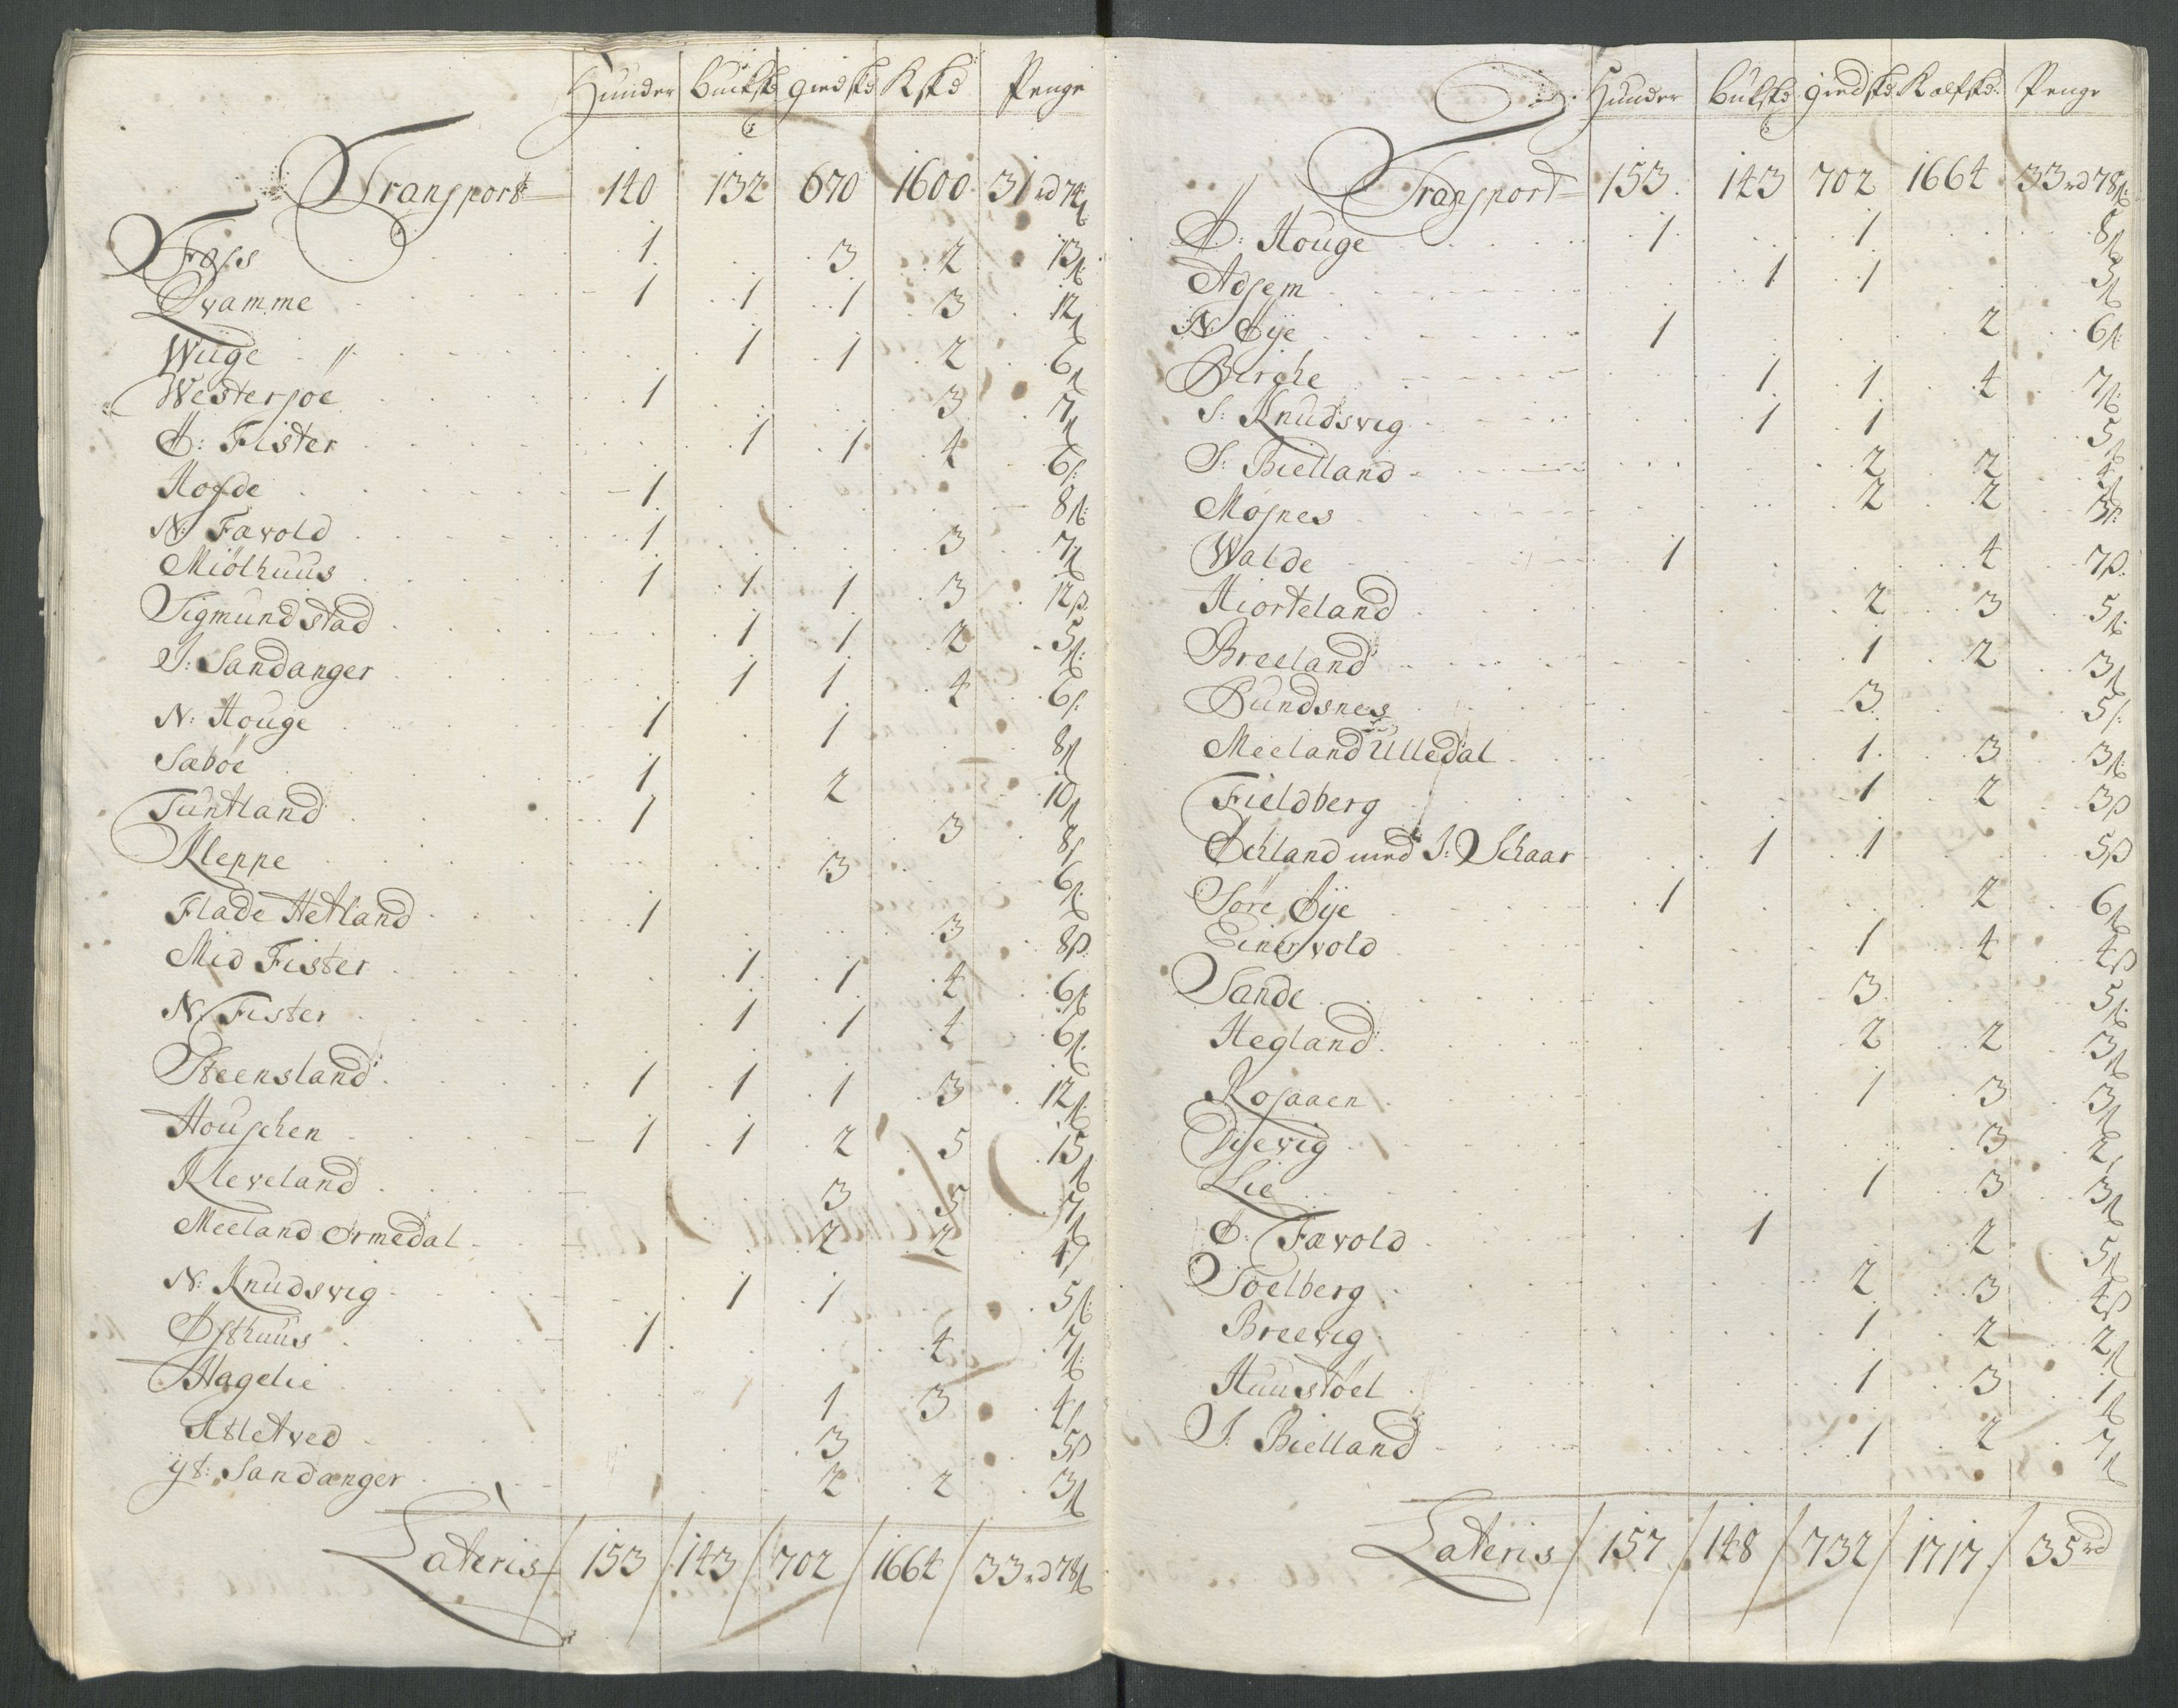 Hunder Buckskd giedskd Kskd Penge
Transport 140 132 670 1600 31 rd 74ß
Foss 1 3 2 13ß
Qvamme 1 1 1 3 12ß
Wiige 1 1 2 6ß
Westersøe 1 3 7ß
Ø: Fister 1 1 4 6ß
Hofde 1 8ß
N: Favold 1 3 7ß
Miölhuus 1 1 1 3 12ß
Sigmundstad 1 1 2 5ß
I: Sandanger 1 1 4 6ß
N: Houge 1 1 8ß
Sæbøe 1 2 10ß
Tuntland 1 3 8ß
Kleppe 3 6ß
Flade Hetland 1 3 8ß
Mid Fister 1 1 4 6ß
N: Fister 1 1 4 6ß
Steensland 1 1 1 3 12ß
Houschen 1 1 2 5 15ß
Kleveland 3 5 7ß
Meeland Ørmedal 2 2 4ß
N: Knudsvig 1 1 5ß
Østhuus 1 4 7ß
Hagelie 1 3 4ß
Asletved 3 5ß
yt: Sandanger 2 2 3ß
Lateris 153 143 702 1664 33 rd 78ß
Hunder Bukskd giedskd Kalfskd Penge
Transport 153 143 702 1664 33 rd 78ß
Ø: Houge 1 1 8ß
Adsem 1 1 5ß
N: Øye 1 2 6ß
Birche 1 1 4 7ß
S: Knudsvig 1 1 5ß
S: Bielland 2 2 4ß
Mosnes 2 2 3ß
Walde 1 4 7ß
Hiorteland 2 3 5ß
Breeland 1 2 3ß
Bundsnes 3 5ß
Meeland Ulledal 1 3 3ß
Fieldberg 1 2 3ß
Echland med I: Schaar 1 1 5ß
Søre Øye 1 2 6ß
Einervold 1 4 4ß
Sande 3 5ß
Hegland 2 2 3ß
Rosaaen 1 3 3ß
Dyevig 3 2ß
Lie 1 3 3ß
Ø: Favold 1 2 5ß
Soelberg 2 3 4ß
Breevig 1 2 2ß
Huustøel 1 3 1ß
I: Bielland 1 2 7ß
Lateris 157 148 732 1717 35 rd